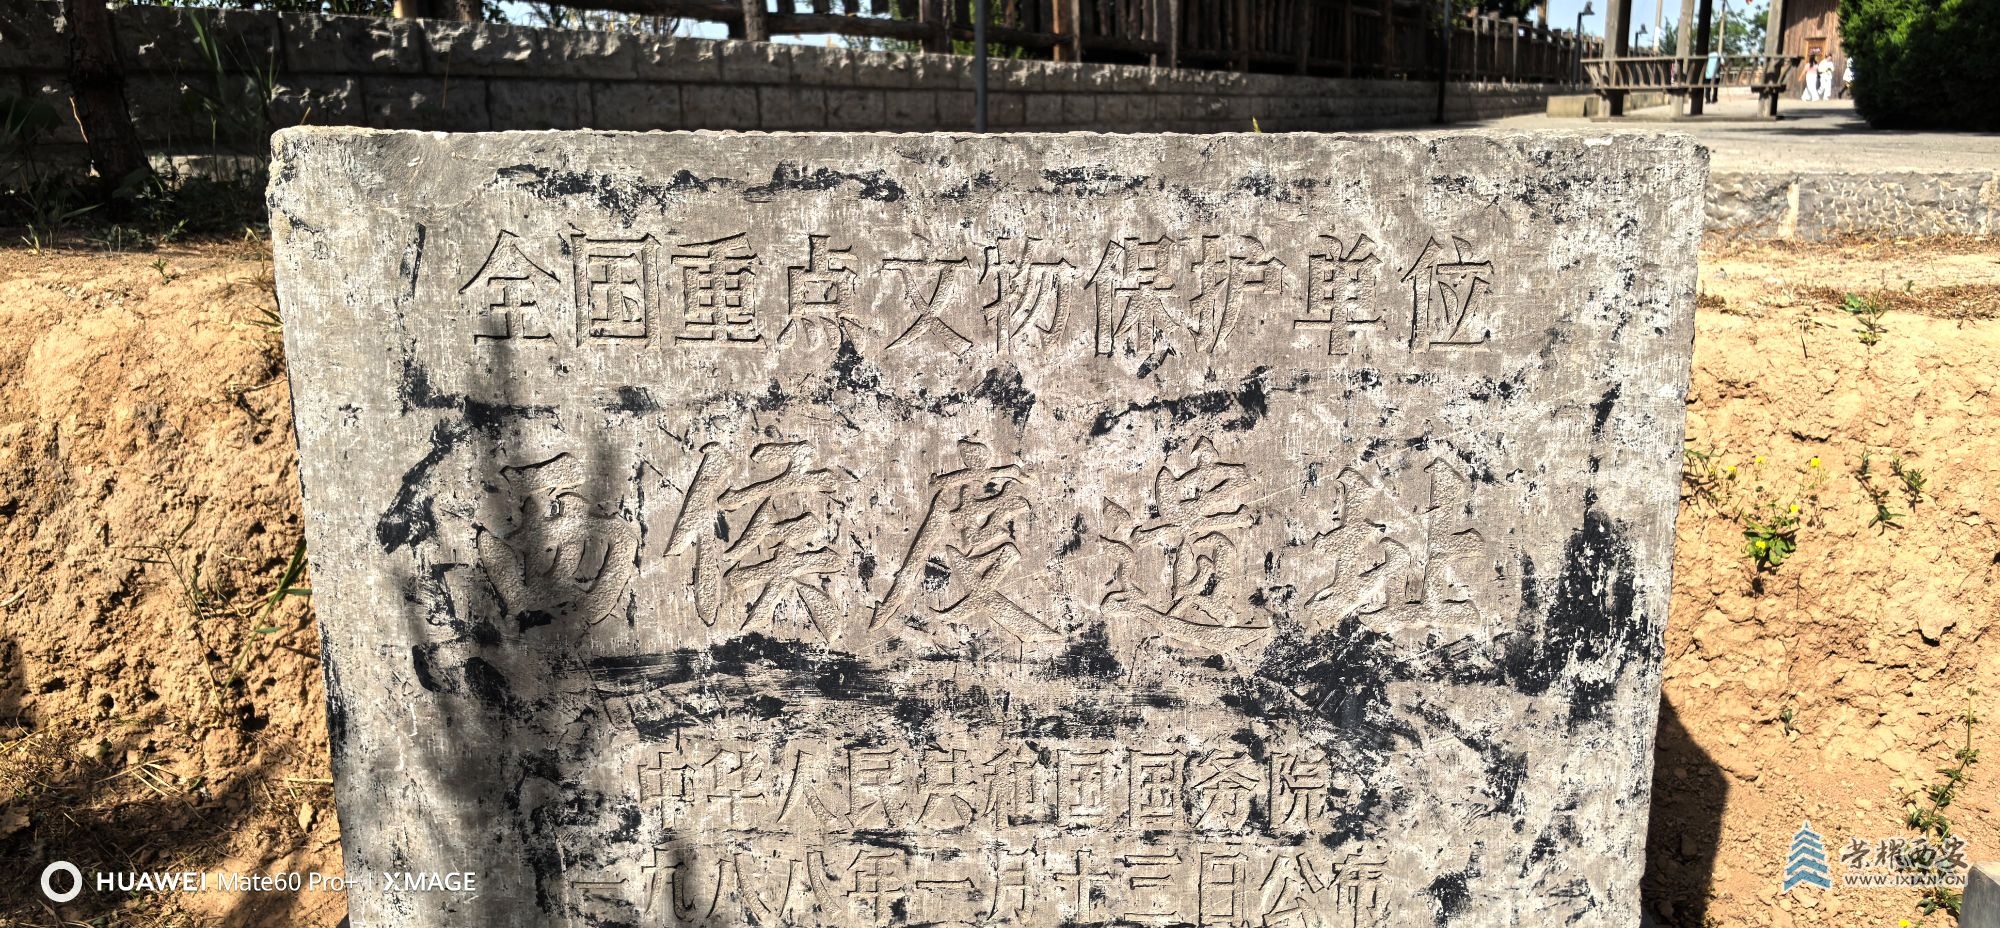 全国重点文物保护单位
西侯度遗址
中华人民共和国国务院
一九八八年一月十三日公布
HUAWEI Mate60 Pro+ | XMAGE
荣耀西安
WWW.IXIAN.CN